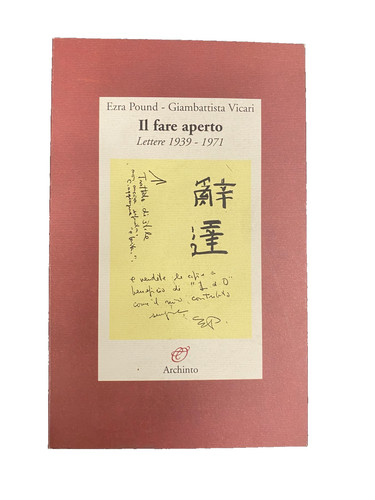 Ezra Pound - Giambattista Vicari
Il fare aperto
Lettere 1939 - 1971
辭
達
di stile
e vendete le copie a
beneficio di "L d O"
contributo
sempre
EP.
Archinto